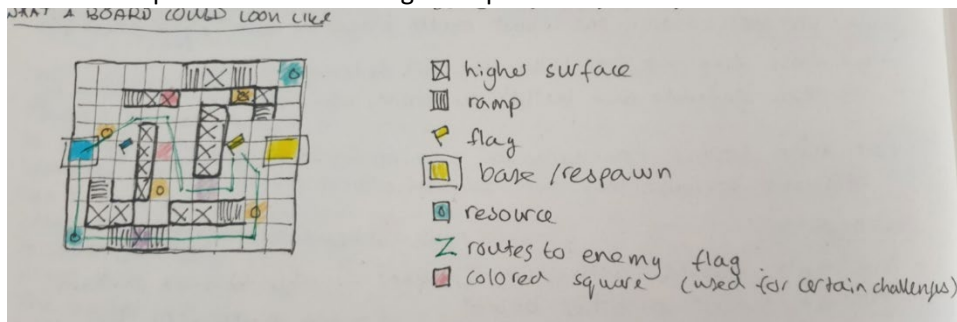 WHAT A BOARD COULD LOOK LIKE
higher surface
ramp
flag
base / respawn
resource
routes to enemy flag.
colored square (used for certain challenges)